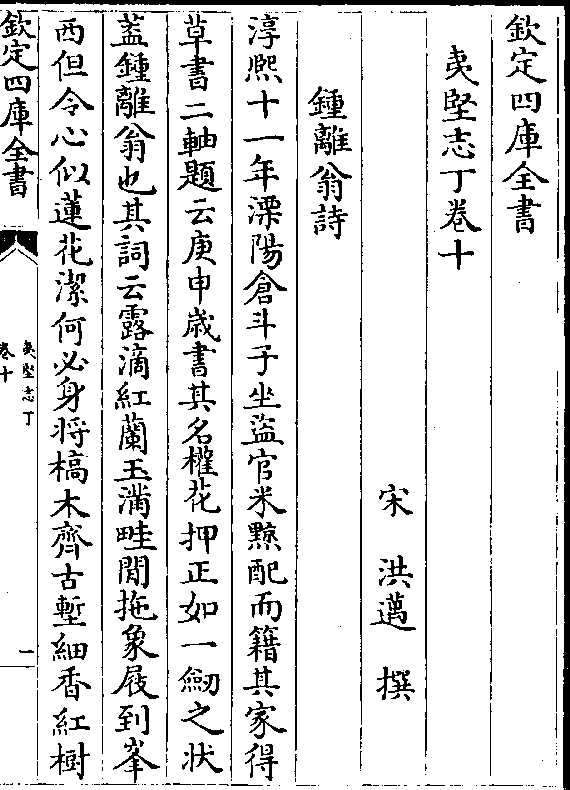 欽定四庫全書
夷堅志丁卷十
宋　洪邁　撰
鍾離翁詩
淳熙十一年溧陽倉斗子坐盜官米黥配而籍其家得
草書二軸題云庚申歳書其名權花押正如一劒之狀
蓋鍾離翁也其詞云露滴紅蘭玉滿畦閒拖象屐到峯
西但令心似蓮花潔何必身將槁木齊古塹細香紅樹
欽定四庫全書
夷堅志丁
卷十
一